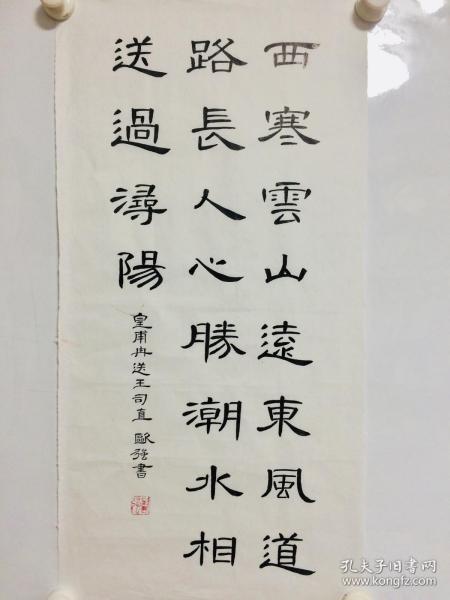 西寒雲山遠東風道
路長人心勝潮水相
送過潯陽
皇甫冉送王司直 歐強書
孔夫子旧书网
www.kongfz.com